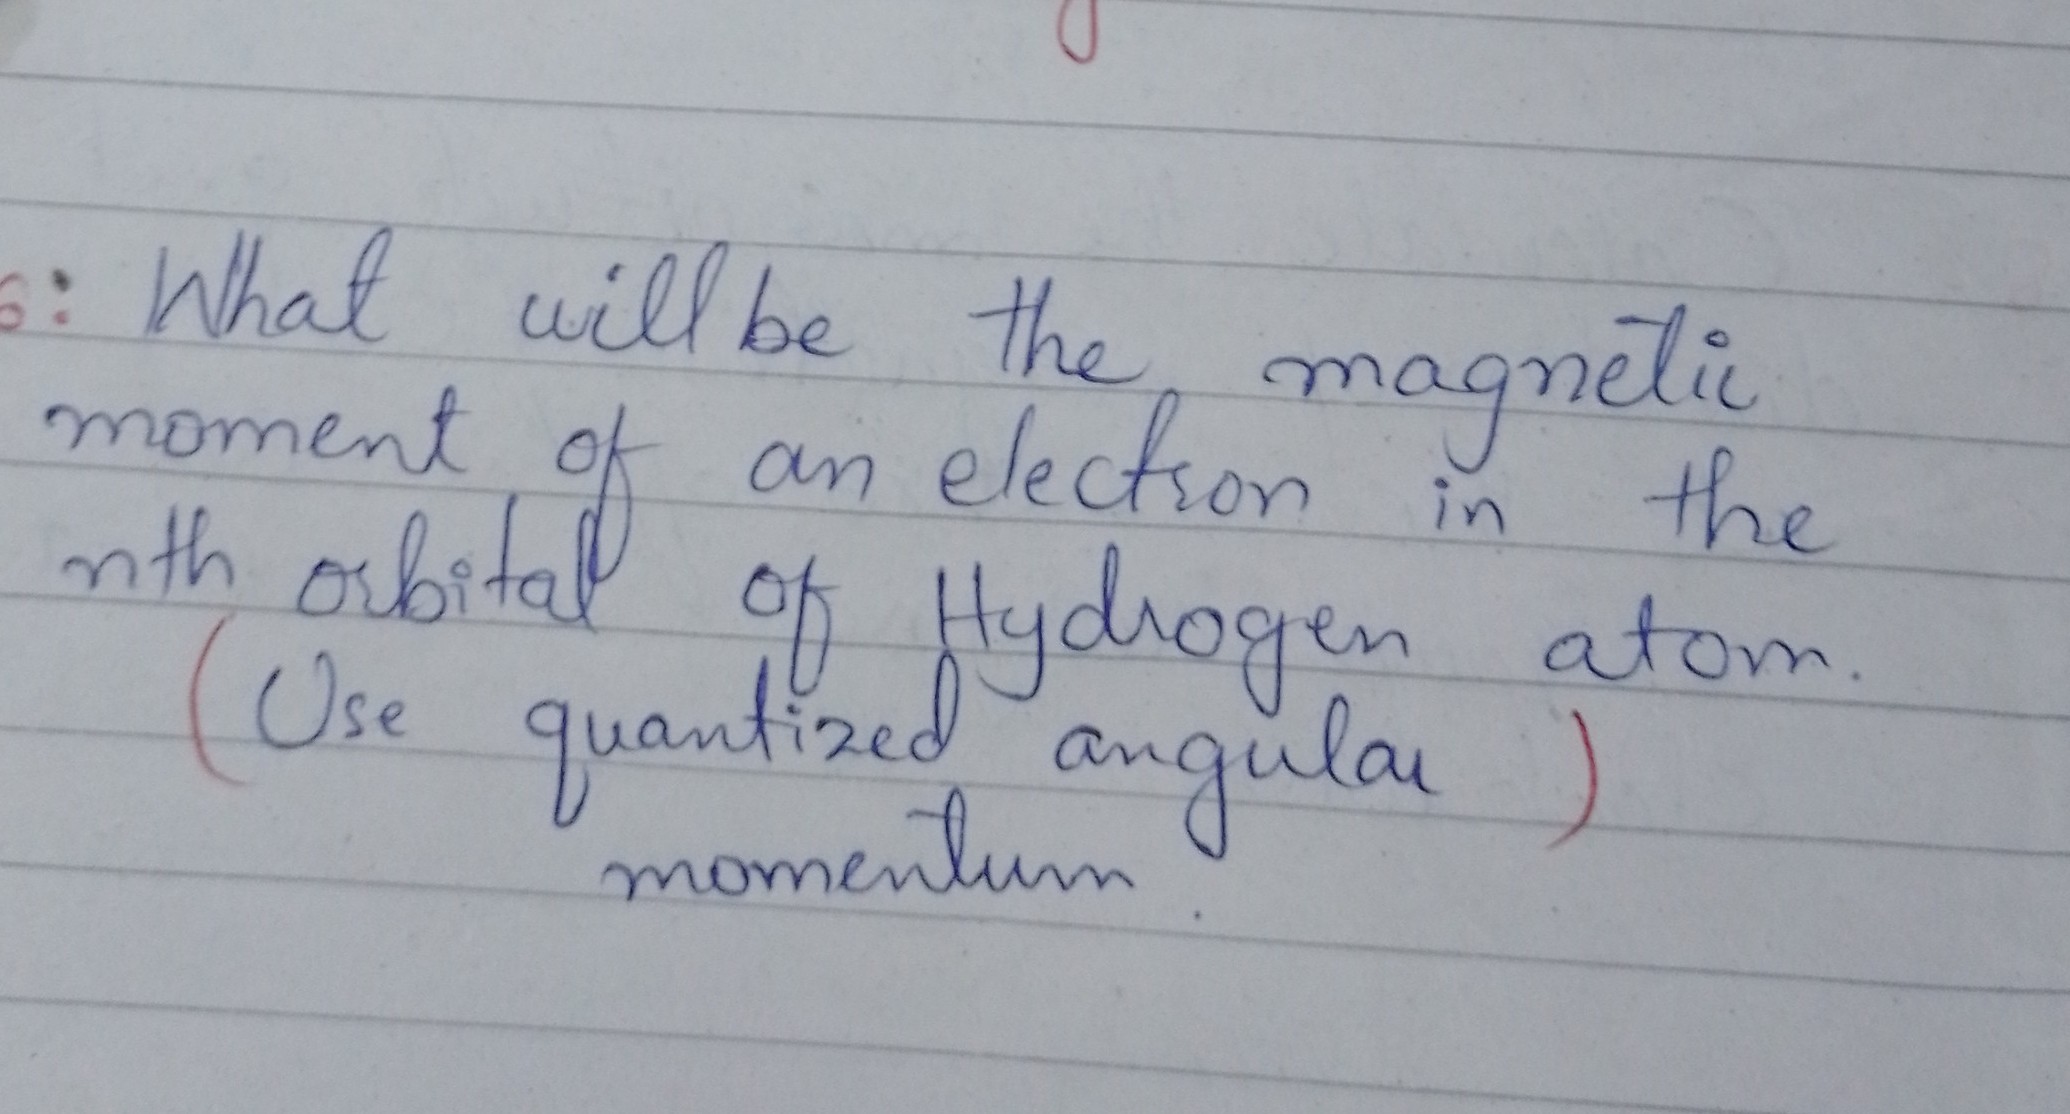 6: What will be the magnetic
moment of an electron in the
nth orbital of Hydrogen atom.
(Use quantized angular )
momentum.